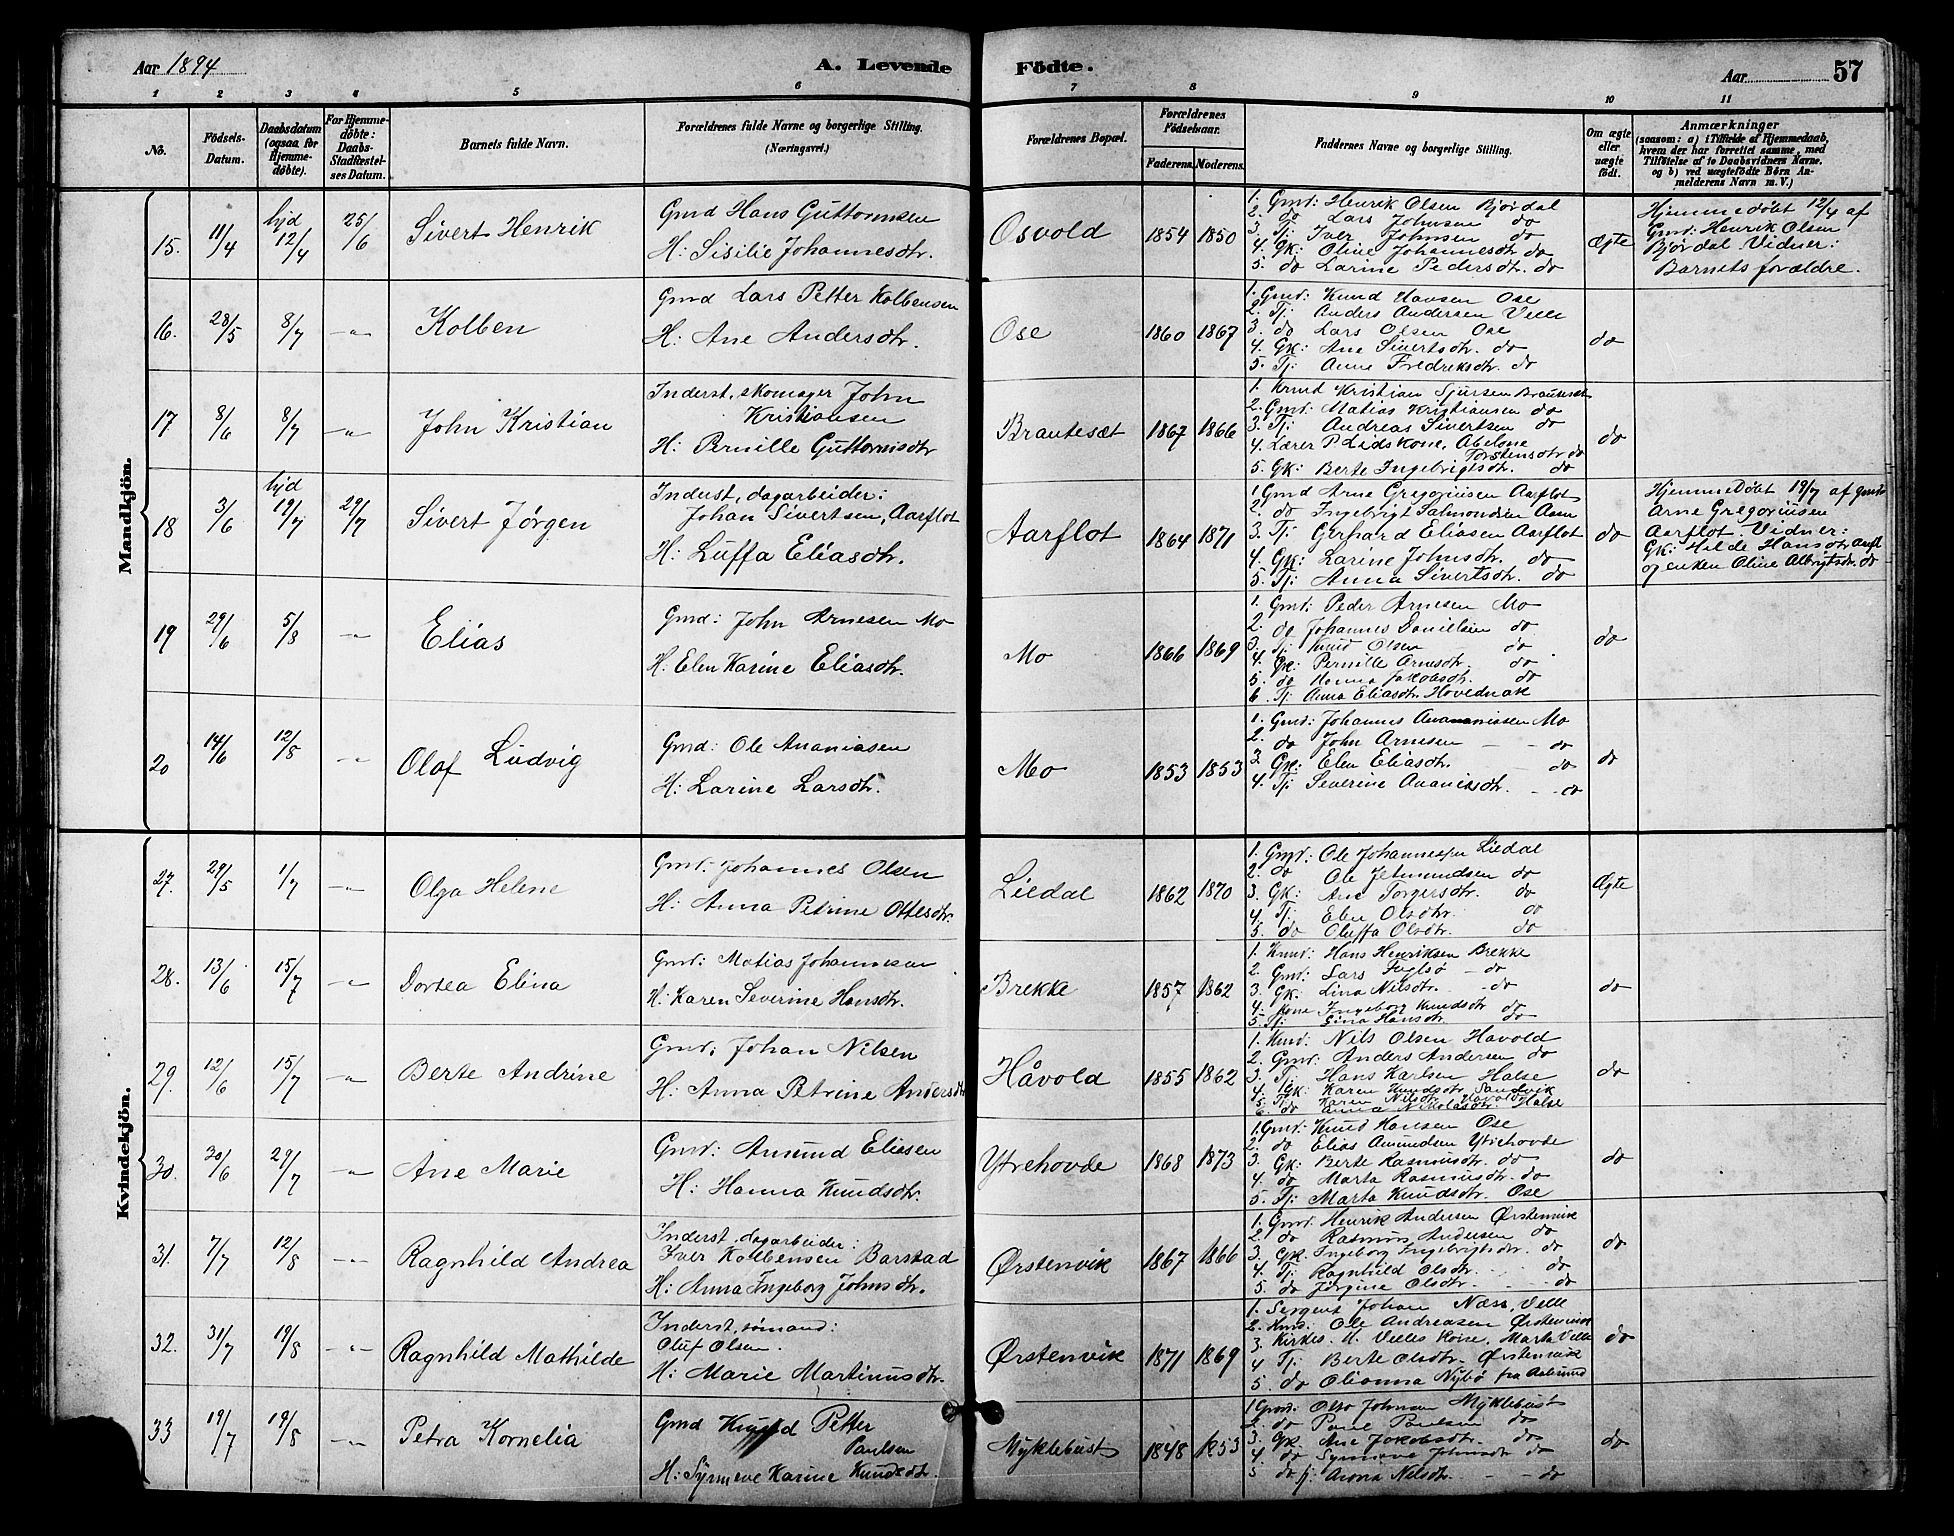 Aar 1894
A. Levende
Födte.
Aar
57
1 2 3 4 5 6 7 8 9 10 11
No.
Födsels-
Datum.
Daabsdatum
(ogsaa for
Hjemme-
døbte).
For Hjemme-
døbte:
Daabs-
Stadfæstel-
ses Datum.
Barnets fulde Navn.
Forældrenes fulde Navne og borgerlige Stilling.
(Næringsvei.)
Forældrenes Bopæl.
Forældrenes
Födselsaar.
Faderens.
Moderens.
Faddernes Navne og borgerlige Stilling.
Om ægte
eller
uægte
födt.
Anmærkninger
(saasom: a) i Tilfælde af Hjemmedaab,
hvem der har forrettet samme, med
Tilföielse af to Daabsvidners Navne.
og b) ved uægtefödte Börn An-
melderens Navn m. V.)
Mandkjön.
15. 11/4 hjd 12/4 25/6 Sivert Henrik
Gmd Hans Guttormsen
H: Sisilie Johannesdtr.
Osvold 1854 1850
1. Gmd: Henrik Olsen Bjørdal
2. do Lars Johnsen do
3. Tj: Iver Johnsen do
4. Gk: Oline Johannesdtr do
5. do Larine Pedersdtr. do
Ægte
Hjemmedøbt 12/4 af
Gmd: Henrik Olsen
Bjørdal. Vidner:
Barnets forældre.
16. 28/5 8/7 -"- Kolben
Gmd Lars Petter Kolbensen
H: Ane Andersdtr.
Ose 1860 1867
1. Gmd: Knud Hansen Ose
2. Tj: Anders Andersen Velle
3. do Lars Olsen Ose
4. Gk: Ane Sivertsdtr. do
5. Tj: Anne Fredriksdtr. do
do
17. 8/6 8/7 -"- John Kristian
Inderst, skomager John
Kristiansen
H: Pernille Guttormsdtr
Brautesæt 1867 1866
1. Kmd Kristian Sjursen Brautesæt
2. Gmd: Matias Kristiansen do
3. Tj: Andreas Sivertsen do
4. Lærer P Lidskone, Abelone
Torstensdtr do
5. Gk: Berte Ingebrigtsdtr. do
do
18 3/6 hjd 19/7 29/7 Sivert Jørgen
Inderst, dagarbeider:
Johan Sivertsen, Aarflot
H: Luffa Eliasdtr.
Aarflot 1864 1871
1 Gmd Arne Gregoriusen Aarflot
2. do Ingebrigt Salmondsen Aam
3. Tj: Gerhard Eliasen Aarflot
4. Gk: Larine Johnsdtr. do
5. Tj: Anna Sivertsdtr. do
do
Hjemmedøbt 19/7 af gmd:
Arne Gregoriusen
Aarflot. Vidner:
Gk: Hilde Hansdtr Aarfl
og enken Oline Albrigtsdtr. do
19 29/6 5/8 -"- Elias
Gmd: John Arnesen Mo
H: Elen Karine Eliasdtr.
Mo 1866 1869
1. Gmd: Peder Arnesen Mo
2. do Johannes Danielsen do
3. Tj: Knud Olsen do
4. Gk: Pernille Arnesdtr. do
5. do Hanna Jakobsdtr. do
6. Tj: Anna Eliasdtr. Hovednak
do
20 14/6 12/8 -"- Olaf Ludvig
Gmd: Ole Ananiasen
H: Larine Larsdtr.
Mo 1853 1853
1. Gmd: Johannes Ananiassen Mo
2. do John Arnesen - - do
3. Gk: Elen Eliasdtr. do
4. Tj: Severine Ananiasdtr. - - do
do
Kvindekjön.
27. 29/5 1/7 -"- Olga Helene
Gmd: Johannes Olsen
H: Anna Petrine Ottesdtr.
Liedal 1862 1870
1. Gmd: Ole Johannesen Liedal
2. do Ole Jetmundsen do
3. Gk: Ane Torgersdtr. do
4. Tj: Elen Olsdtr. do
5. do Oluffa Olsdtr. do
Ægte
28. 13/6 15/7 -"- Dortea Elina
Gmd: Matias Johannesen
H: Karen Severine Hansdtr.
Brekke 1857 1862
1. Kmd: Hans Henriksen Brekke
2. Gmd: Lars Fuglsø - do
3. Gk. Lina Nilsdtr. - do
4. Kone Ingeborg Knudsdtr do
5. Tj: Gina Hansdtr. do
do
29. 12/6 15/7 -"- Berte Andrine
Gmd: Johan Nilsen
H: Anna Petrine Andersdtr
Håvold 1855 1862
1. Kmd: Nils Olsen Havold
2. Gmd: Anders Andersen do
3. Tj: Hans Karlsen Halse
4. Gk: Karen Knudsdtr. Sandvik
5. Tj: Karen Nilsdtr. Havold
6. do Anna Nikolasdtr. Halse
do
30. 30/6 29/7 -"- Ane Marie
Gmd: Amund Eliasen
H: Hanna Knudsdtr.
Ytrehovde 1868 1873
1. Gmd: Knud Hansen Ose
2. do Elias Amundsen Ytrehovde
3. Gk: Berte Rasmusdtr. do
4. do Marta Rasmusdtr. do
5. Tj: Marta Knudsdtr. Ose
do
31. 7/7 12/8 -"- Ragnhild Andrea
Inderst, dagarbeider:
Iver Kolbensen Barstad
H: Anna Ingeborg Johnsdtr.
Ørstenvik 1867 1866
1. Gmd: Henrik Andersen Ørstenvik
2. do Rasmus Andersen do
3. Gk. Ingeborg Ingebrigtsdtr. do
4. Tj: Ragnhild Olsdtr. do
5. do Jørgine Olsdtr. do
do
32. 31/7 19/8 -"- Ragnhild Mathilde
Inderst, sømand:
Oluf Olsen.
H: Marie Martinusdtr.
Ørstenvik 1871 1869
1. Sergent Johan Næss, Velle
2. Hmd: Ole Andreasen Ørstenvik
3. Kirkes. M. Velles kone, Marta Velle
4. Tj: Berte Olsdtr. Ørstenvik
5. do Olianna Nybø fra Aalesund
do
33 19/7 19/8 -"- Petra Kornelia
Gmd Knud Petter
Paulsen
H: Synneve Karine Knudsdtr.
Myklebust 1848 1853
1 Gmd: Otto Johnsen Myklebust
2. do Paul Paulsen do
3. Gk. Ane Jakobsdtr. do
4. do Synneve Johnsdtr do
5. do Anna Nilsdtr. - - do
do